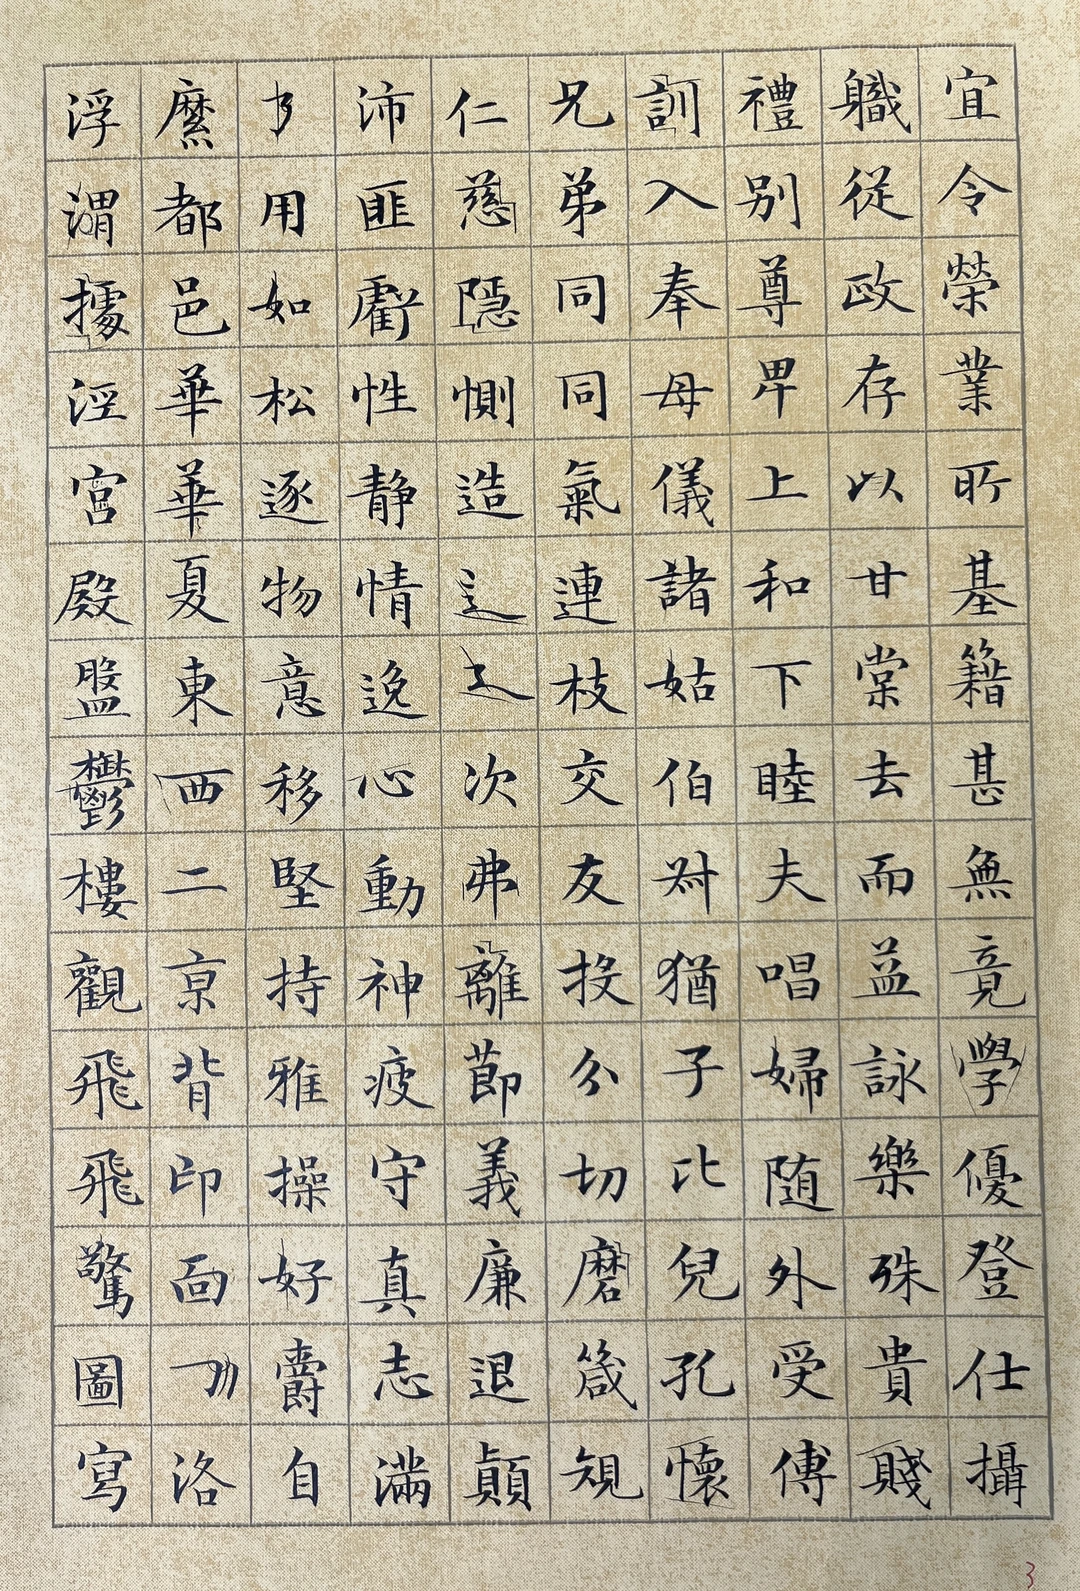 宜令榮業所基籍甚無竟學優登仕攝
軄從政存以甘棠去而益詠樂殊貴賤
禮别尊卑上和下睦夫唱婦随外受傅
訓入奉母儀諸姑伯叔猶子比兒孔懷
兄弟同同氣連枝交友投分切磨箴規
仁慈隱惻造次弗離莭義廉退顛
沛匪虧性静情逸心動神疲守真志滿
用如松逐物意移堅持雅操好爵自
縻都邑華華夏東西二亰背邙面洛
浮渭據涇宮殿盤鬱樓觀飛飛驚圖寫
3